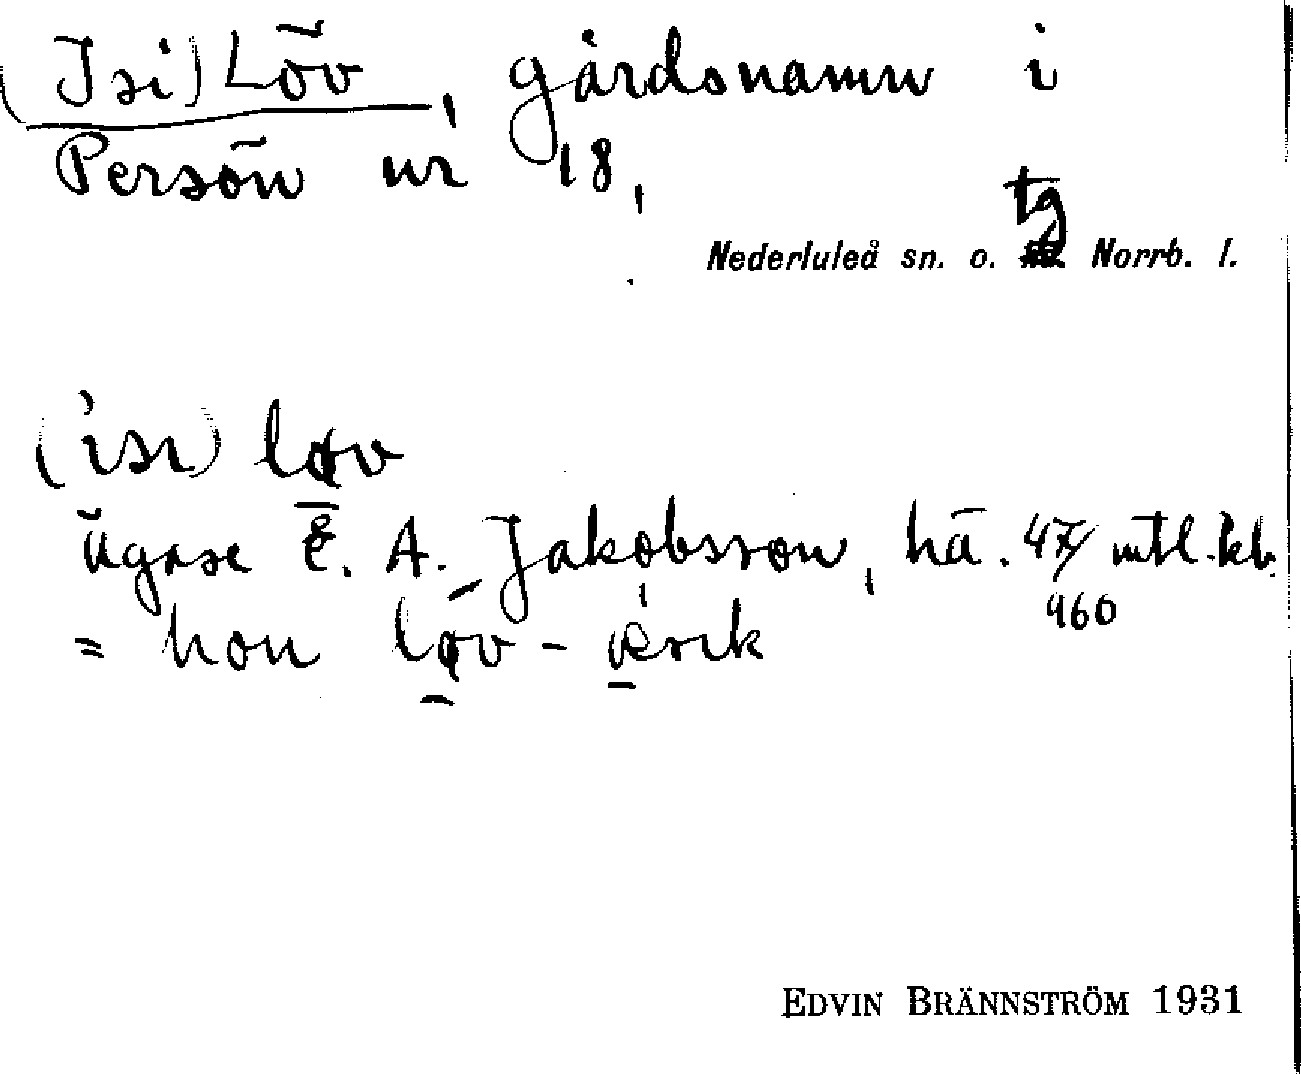 (Isi) Löv, gårdsnamn i
Persön nr 18,
tg
Nederluleå sn. o. Norrb. l.
(isi) løv
ägare E. A. Jakobsson, hä. 47/ mtl. kb.
960
= hon løv - erik
EDVIN BRÄNNSTRÖM 1931